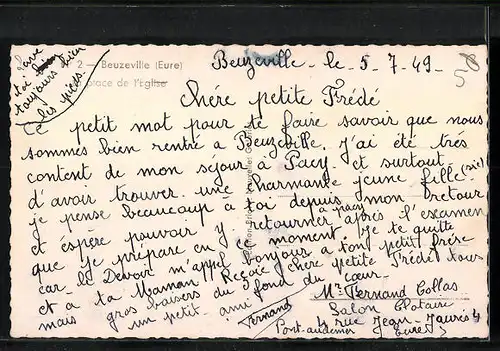 Lave
toi bien
toujours bien
les pieds.
2 - Beuzeville (Eure)
place de l'Eglise
Beuzeville - le - 5 - 7 - 49
Chère petite Frédé
Ce petit mot pour te faire savoir que nous
sommes bien rentré a Beuzeville, j'ai été très
content de mon séjour à Pacy et surtout
d'avoir trouver une charmante jeune fille (sic)
je pense beaucoup à toi depuis mon retour
et espère pouvoir y retourner après l'examen
que je prépare en ce moment. Je te quitte
car le Devoir m'appel Bonjour a ton petit frère
et a ta Maman Reçoie chère petite Frédé tous
mais gros baisers du fond du cœur
un petit ami
Fernand
Mr Fernand Collas
Salon Clotaire
4 rue Jean-Jaurés
Pont-audemer (Eure)